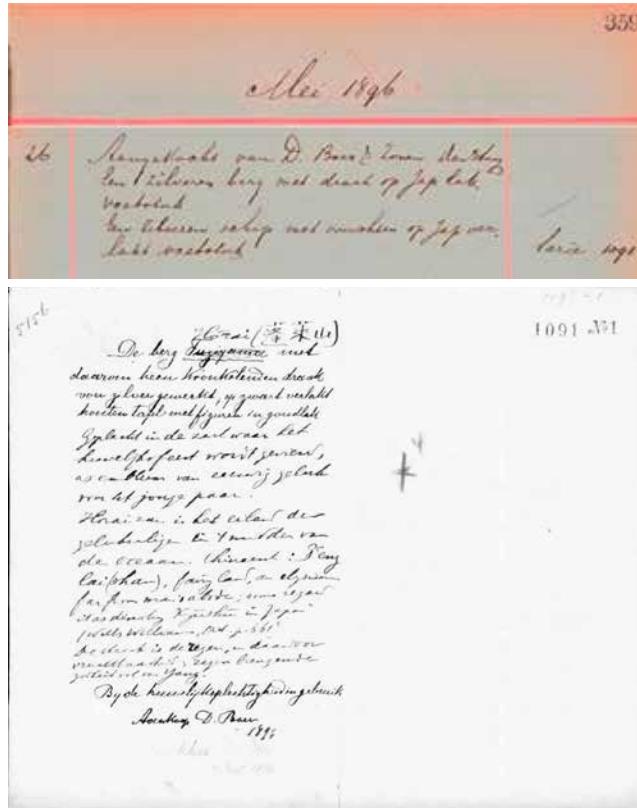 359
Mei 1896
26 Aangekocht van D. Boer & Zonen, den Haag
Een zilveren berg met draak op Jap. lak
voetstuk
Een zilveren schip met op Jap. ver-
lakt voetstuk Serie 1091
5156
1091 №1
Hôrai (蓬萊山)
De berg Fuziyama met
daarom heen kronkelenden draak
van zilver gewerkt, op zwart verlakt
houten tafel met figuren in goudlak
Geplaatst in de zaal waar het
huwelijksfeest wordt gevierd,
als embleem van eeuwig geluk
voor het jonge paar.
Horaizan is het eiland der
gelukzaligen in 't midden van
de oceaan. Chineesch: P'eng
lai (shan), fairy land, an elysium
far from man's abode; some regard
it as denoting in Japan
(Wells Williams, p. 661)
De draak is de regen, en daardoor
vruchtbaarheid, zegen brengende
Yang.
By de huwelijksplechtigheid in gebruik
Aankoop D. Boer
1896